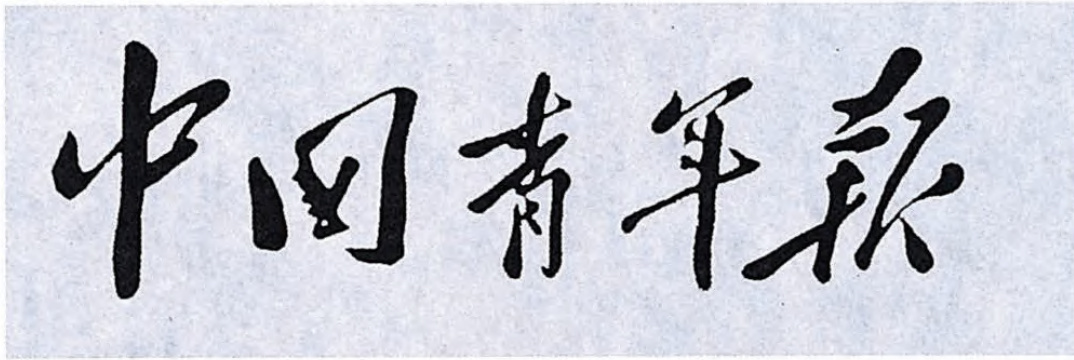 中国青年报